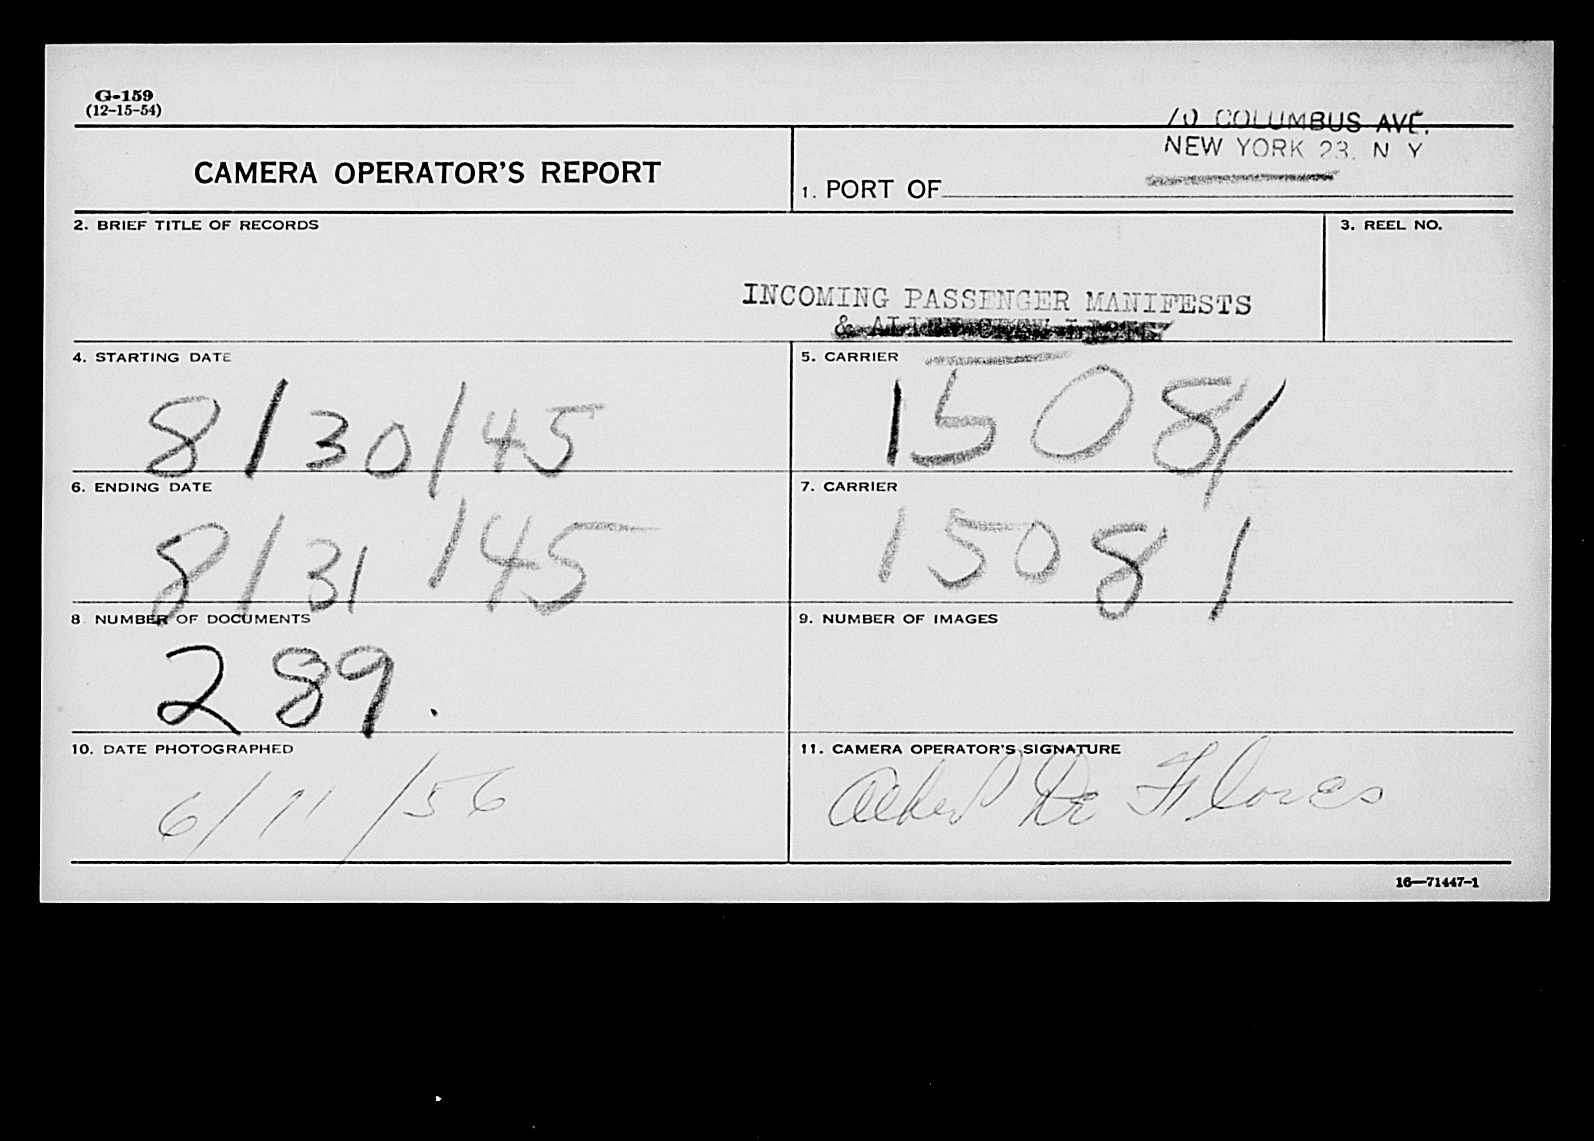 G-159
(12-15-54)
70 COLUMBUS AVE.
NEW YORK 23, N Y
CAMERA OPERATOR'S REPORT
1. PORT OF
2. BRIEF TITLE OF RECORDS
3. REEL NO.
INCOMING PASSENGER MANIFESTS
&
4. STARTING DATE
8/30/45
5. CARRIER
15081
6. ENDING DATE
8/31/45
7. CARRIER
15081
8 NUMBER OF DOCUMENTS
289.
9. NUMBER OF IMAGES
10. DATE PHOTOGRAPHED
6/11/56
11. CAMERA OPERATOR'S SIGNATURE
De Flores
16—71447-1